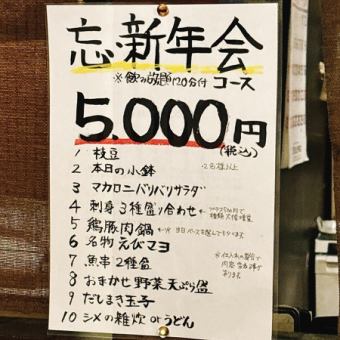 忘・新年会
※飲み放題120分付 コース
5.000円
(税込)
1 枝豆
2 本日の小鉢
・2名様以上
3 マカロニパリパリサラダ
4 刺身3種盛り合わせ
5 鶏豚肉鍋
6 名物えびマヨ
7 魚串2種盛
8 おまかせ野菜天ぷら盛
9 だしまき玉子
10 シメの雑炊orうどん